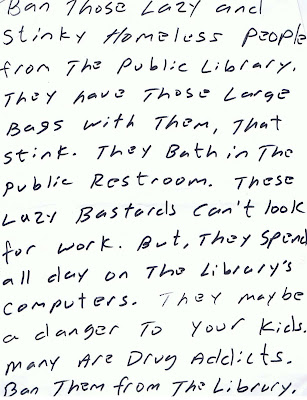 "Ban Those Lazy and
Stinky Homeless People
from The Public Library.
They have Those Large
Bags with Them, That
Stink. They Bath in The
Public Restroom. These
Lazy Bastards Can't look
for work. But, They Spend
all day on The Library's
Computers. They maybe
a danger To Your Kids.
Many Are Drug Addicts.
Ban Them from The Library.